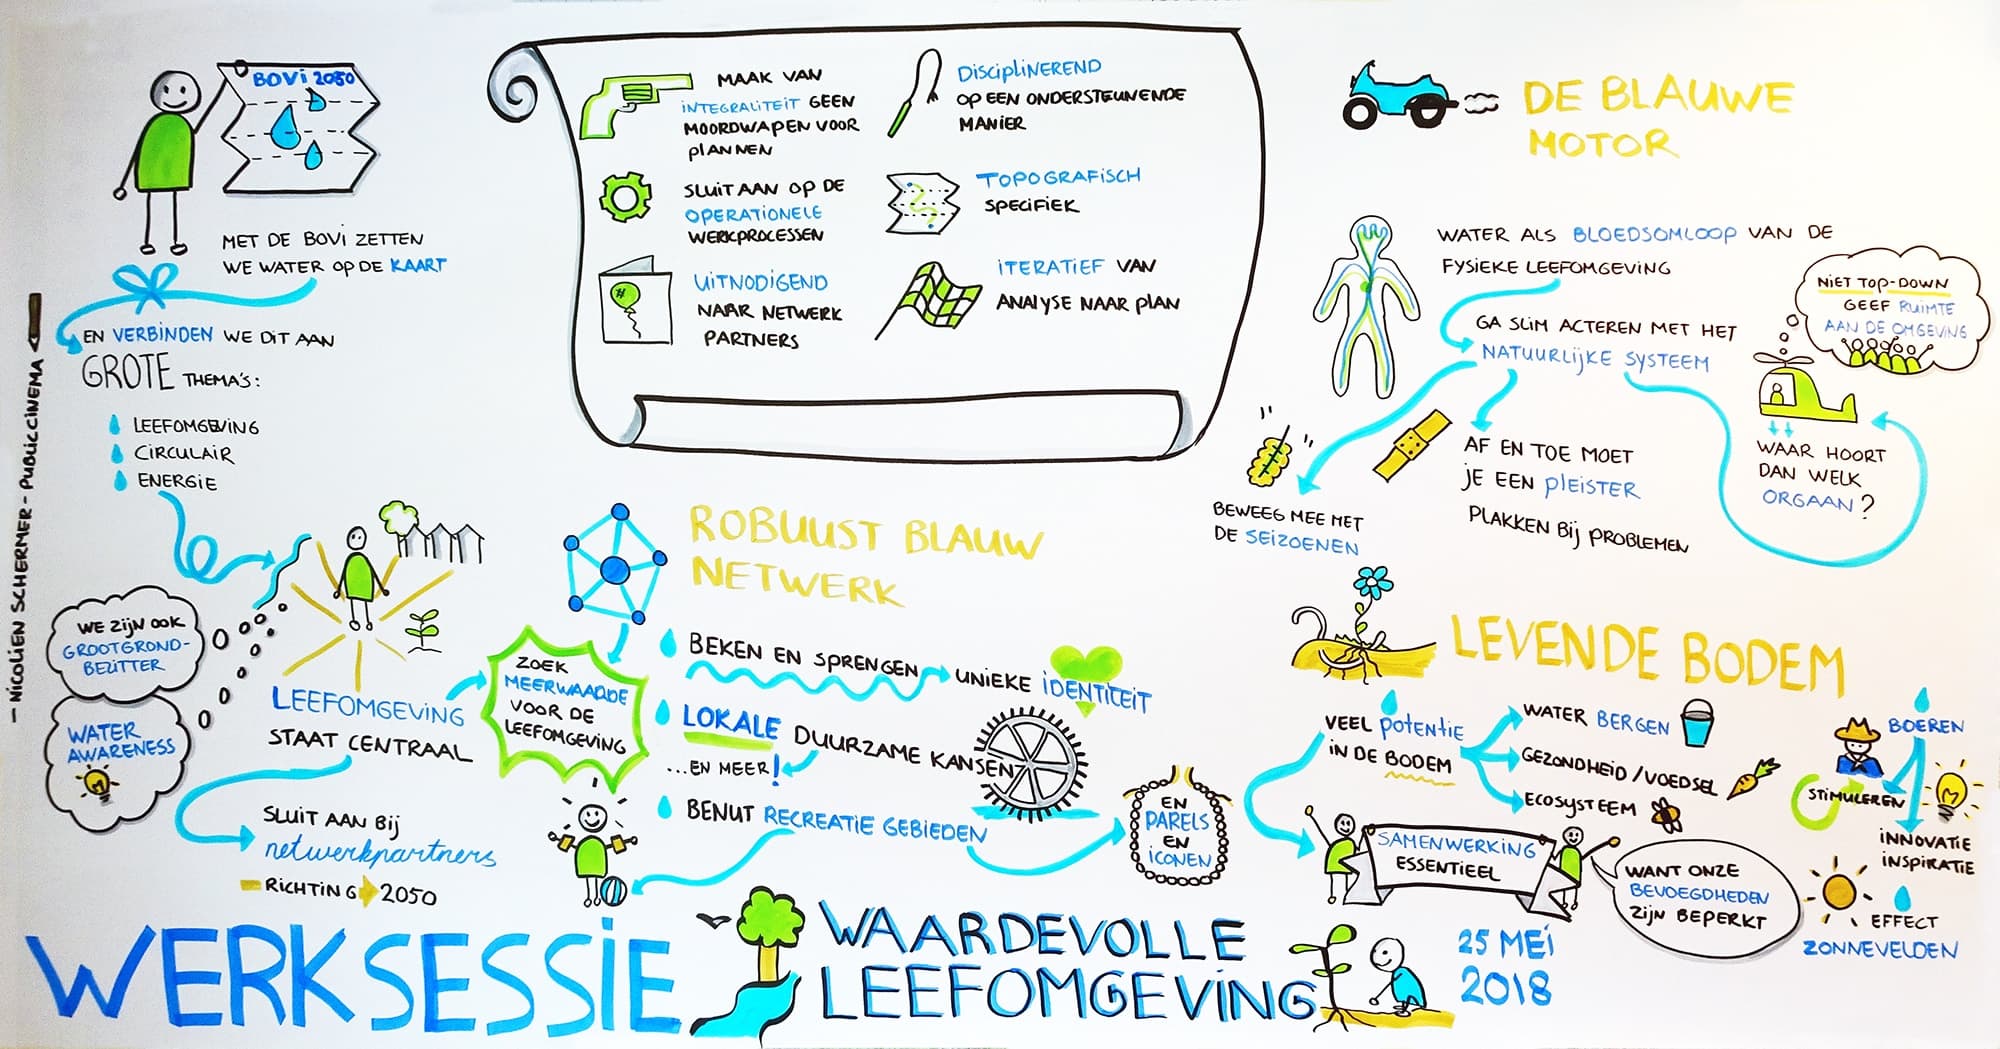 BOVI 2050
MET DE BOVI ZETTEN
WE WATER OP DE KAART
EN VERBINDEN WE DIT AAN
GROTE THEMA'S:
LEEFOMGEVING
CIRCULAIR
ENERGIE
WE ZIJN OOK
GROOTGROND-
BEZITTER
WATER
AWARENESS
LEEFOMGEVING
STAAT CENTRAAL
SLUIT AAN BIJ
netwerkpartners
RICHTING 2050
— NICOLIEN SCHERMER - PUBLICCINEMA
MAAK VAN
INTEGRALITEIT GEEN
MOORDWAPEN VOOR
PLANNEN
SLUIT AAN OP DE
OPERATIONELE
WERKPROCESSEN
#
UITNODIGEND
NAAR NETWERK
PARTNERS
DISCIPLINEREND
OP EEN ONDERSTEUNENDE
MANIER
TOPOGRAFISCH
SPECIFIEK
ITERATIEF VAN
ANALYSE NAAR PLAN
ROBUUST BLAUW
NETWERK
ZOEK
MEERWAARDE
VOOR DE
LEEFOMGEVING
BEKEN EN SPRENGEN
UNIEKE IDENTITEIT
LOKALE DUURZAME KANSEN
...EN MEER!
BENUT RECREATIE GEBIEDEN
EN
PARELS
EN
ICONEN
DE BLAUWE
MOTOR
WATER ALS BLOEDSOMLOOP VAN DE
FYSIEKE LEEFOMGEVING
GA SLIM ACTEREN MET HET
NATUURLIJKE SYSTEEM
NIET TOP-DOWN
GEEF RUIMTE
AAN DE OMGEVING
WAAR HOORT
DAN WELK
ORGAAN?
BEWEEG MEE MET
DE SEIZOENEN
AF EN TOE MOET
JE EEN PLEISTER
PLAKKEN BIJ PROBLEMEN
LEVENDE BODEM
VEEL POTENTIE
IN DE BODEM
WATER BERGEN
GEZONDHEID/VOEDSEL
ECOSYSTEEM
SAMENWERKING
ESSENTIEEL
WANT ONZE
BEVOEGDHEDEN
ZIJN BEPERKT
BOEREN
STIMULEREN
INNOVATIE
INSPIRATIE
EFFECT
ZONNEVELDEN
WERKSESSIE
WAARDEVOLLE
LEEFOMGEVING
25 MEI
2018